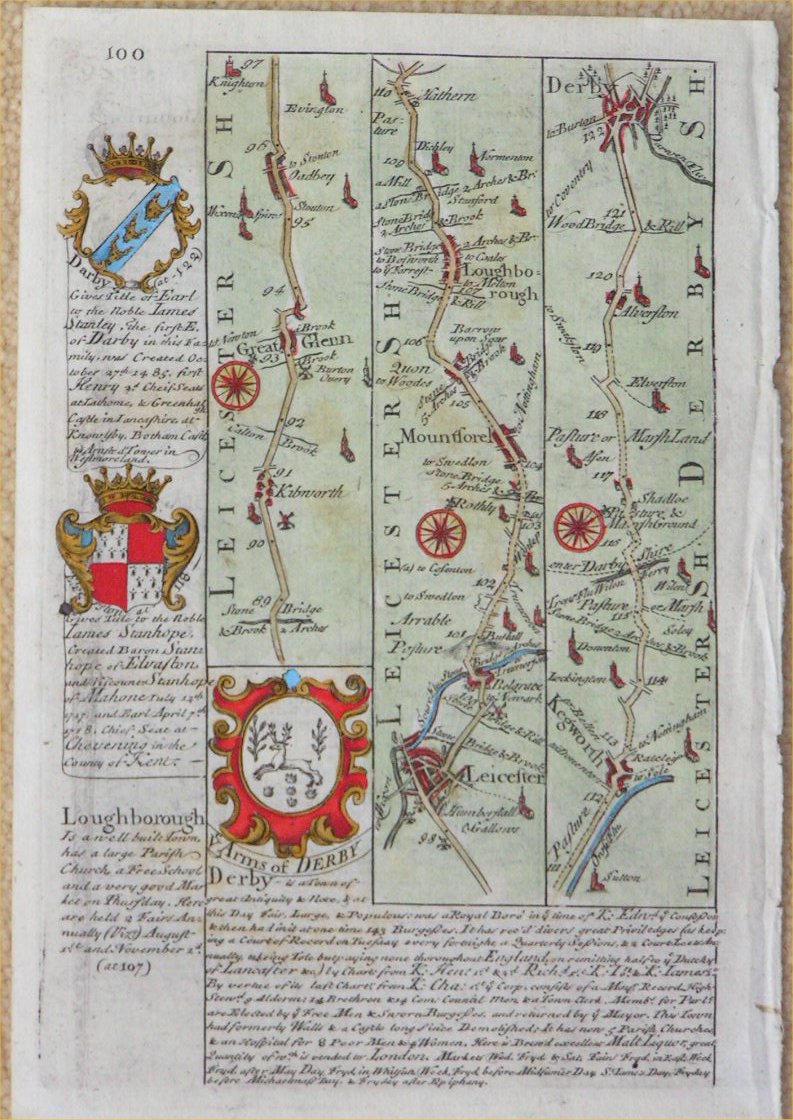 100
Darby (at 122)
Gives Title of Earl
to the Noble Iames
Stanley. The first E.
of Darby in this Fa-
mily, was Created Oc-
tober 27th 1485, first
Henry 7th Cheif Seats
at Lathome, & Greenhalgh
Castle in Lancashire, at
Knowsly, Botham Castle
Tower in
Westmoreland.
at 116
Gives Title to the Noble
Iames Stanhope.
Created Baron Stan
hope of Elvaston
and Viscount Stanhope
of Mahone Iuly
1717, and Earl April 7th
1718. Chief Seat at
Chevening in the
County of Kent
Loughborough
Is a well built Town,
has a large Parish
Church, a Free School
and a very good Mar
ket on Thursday. Here
are held 2 Fairs An-
nually (Vizt) August
1st and November 2d
(at 107)
LEICESTER SH
97
Knighton
Evington
96
to Stouton
Oadbey
Stouton
95
94
to Newton
Brook
Great Glenn
93
Brook
Burton
Overy
92
Brook
91
Kibworth
90
89
Stone Bridge
& Brook 2 Arches
ye Arms of DERBY
LEICESTER SH
110
Hathern
Pas-
ture
109
Dichley
Normenton
a Mill
a Stone Bridge 2 Arches & Br.
Stanford
Stone Bridg
2 Arches & Brook
108
Stone Bridg 2 Arches & Br
to Bosworth to Coales
to ye Forrest to Melton
Loughbo-
rough
107
Stone Bridg & Rill
106
Barrow
upon Soar
Quon
to Woodes
Stone Bridge
5 Arches & Brook
105
to Nottingham
Mountsorel
104
to Swedlon
Stone Bridge
5 Arches &
Rothly
103
to Cosenton
102
to Swedlon
Arrable
101
Pasture
Belgrave
to Newark
Bridg & Rill
Stone Bridg & Brook
Leicester
Humberstall
Gallows
98
DERBY SH
Derby
to Burton
122
to Coventry
121
Wood Bridge & Rill
120
Alverston
119
118
Elverston
Pasture or Marsh Land
117
Shadloe
Pasture &
Marsh Ground
116
enter Darby Shire
Ferry
Wilen
Pasture
115
or Marsh
Stone Bridge 2 Arches & Brook
Domenton
Lockington
114
Kegworth
113
to Nottingham
Rateley
to Sole
112
Pasture
111
Sutton
LEICESTER SH
Derby is a Town of
great Antiquity & Note, & at
this Day Fair, Large, & Populous: was a Royal Boro' in ye time of K: Edwd ye Confessor
& then had in it at one time 143 Burgesses. It has rec'd divers great Priviledges (as keep
ing a Court of Record on Tuesday every fortnight a Quarterly Sessions, & 2 Court Leets An
nually, taking Tole but paying none throughout England, on remitting half to ye Dutchy
of Lancaster &c.) by Charts from K: Hen: 1st & 2d Richd 1st K: Is: & K: Iames 1st
By vertue of its last Charter from K: Cha: 1st ye Corp. consists of a Mayr Record. High
Stewd 9 Aldermn 14 Brethren & 14 Com: Council Men & a Town Clerk, Membrs for Parlt
are Elected by ye Free Men & Sworn Burgesses, and returned by ye Mayor. This Town
had formerly Walls & a Castle long since Demolished: It has now 5 Parish Churches
& an Hospital for 8 Poor Men & 4 Women. Here is Brew'd excellent Malt Liquor, great
Quantity of wch is vended to London. Markets Wed. Fryd & Sat. Fairs Fryd. in East. Week
Fryd. after May Day, Fryd. in Whitsun Week, Fryd. before Midsumer Day St. Iames's Day, Fryday
before Michaelmass Day, & Fryday after Epiphany.